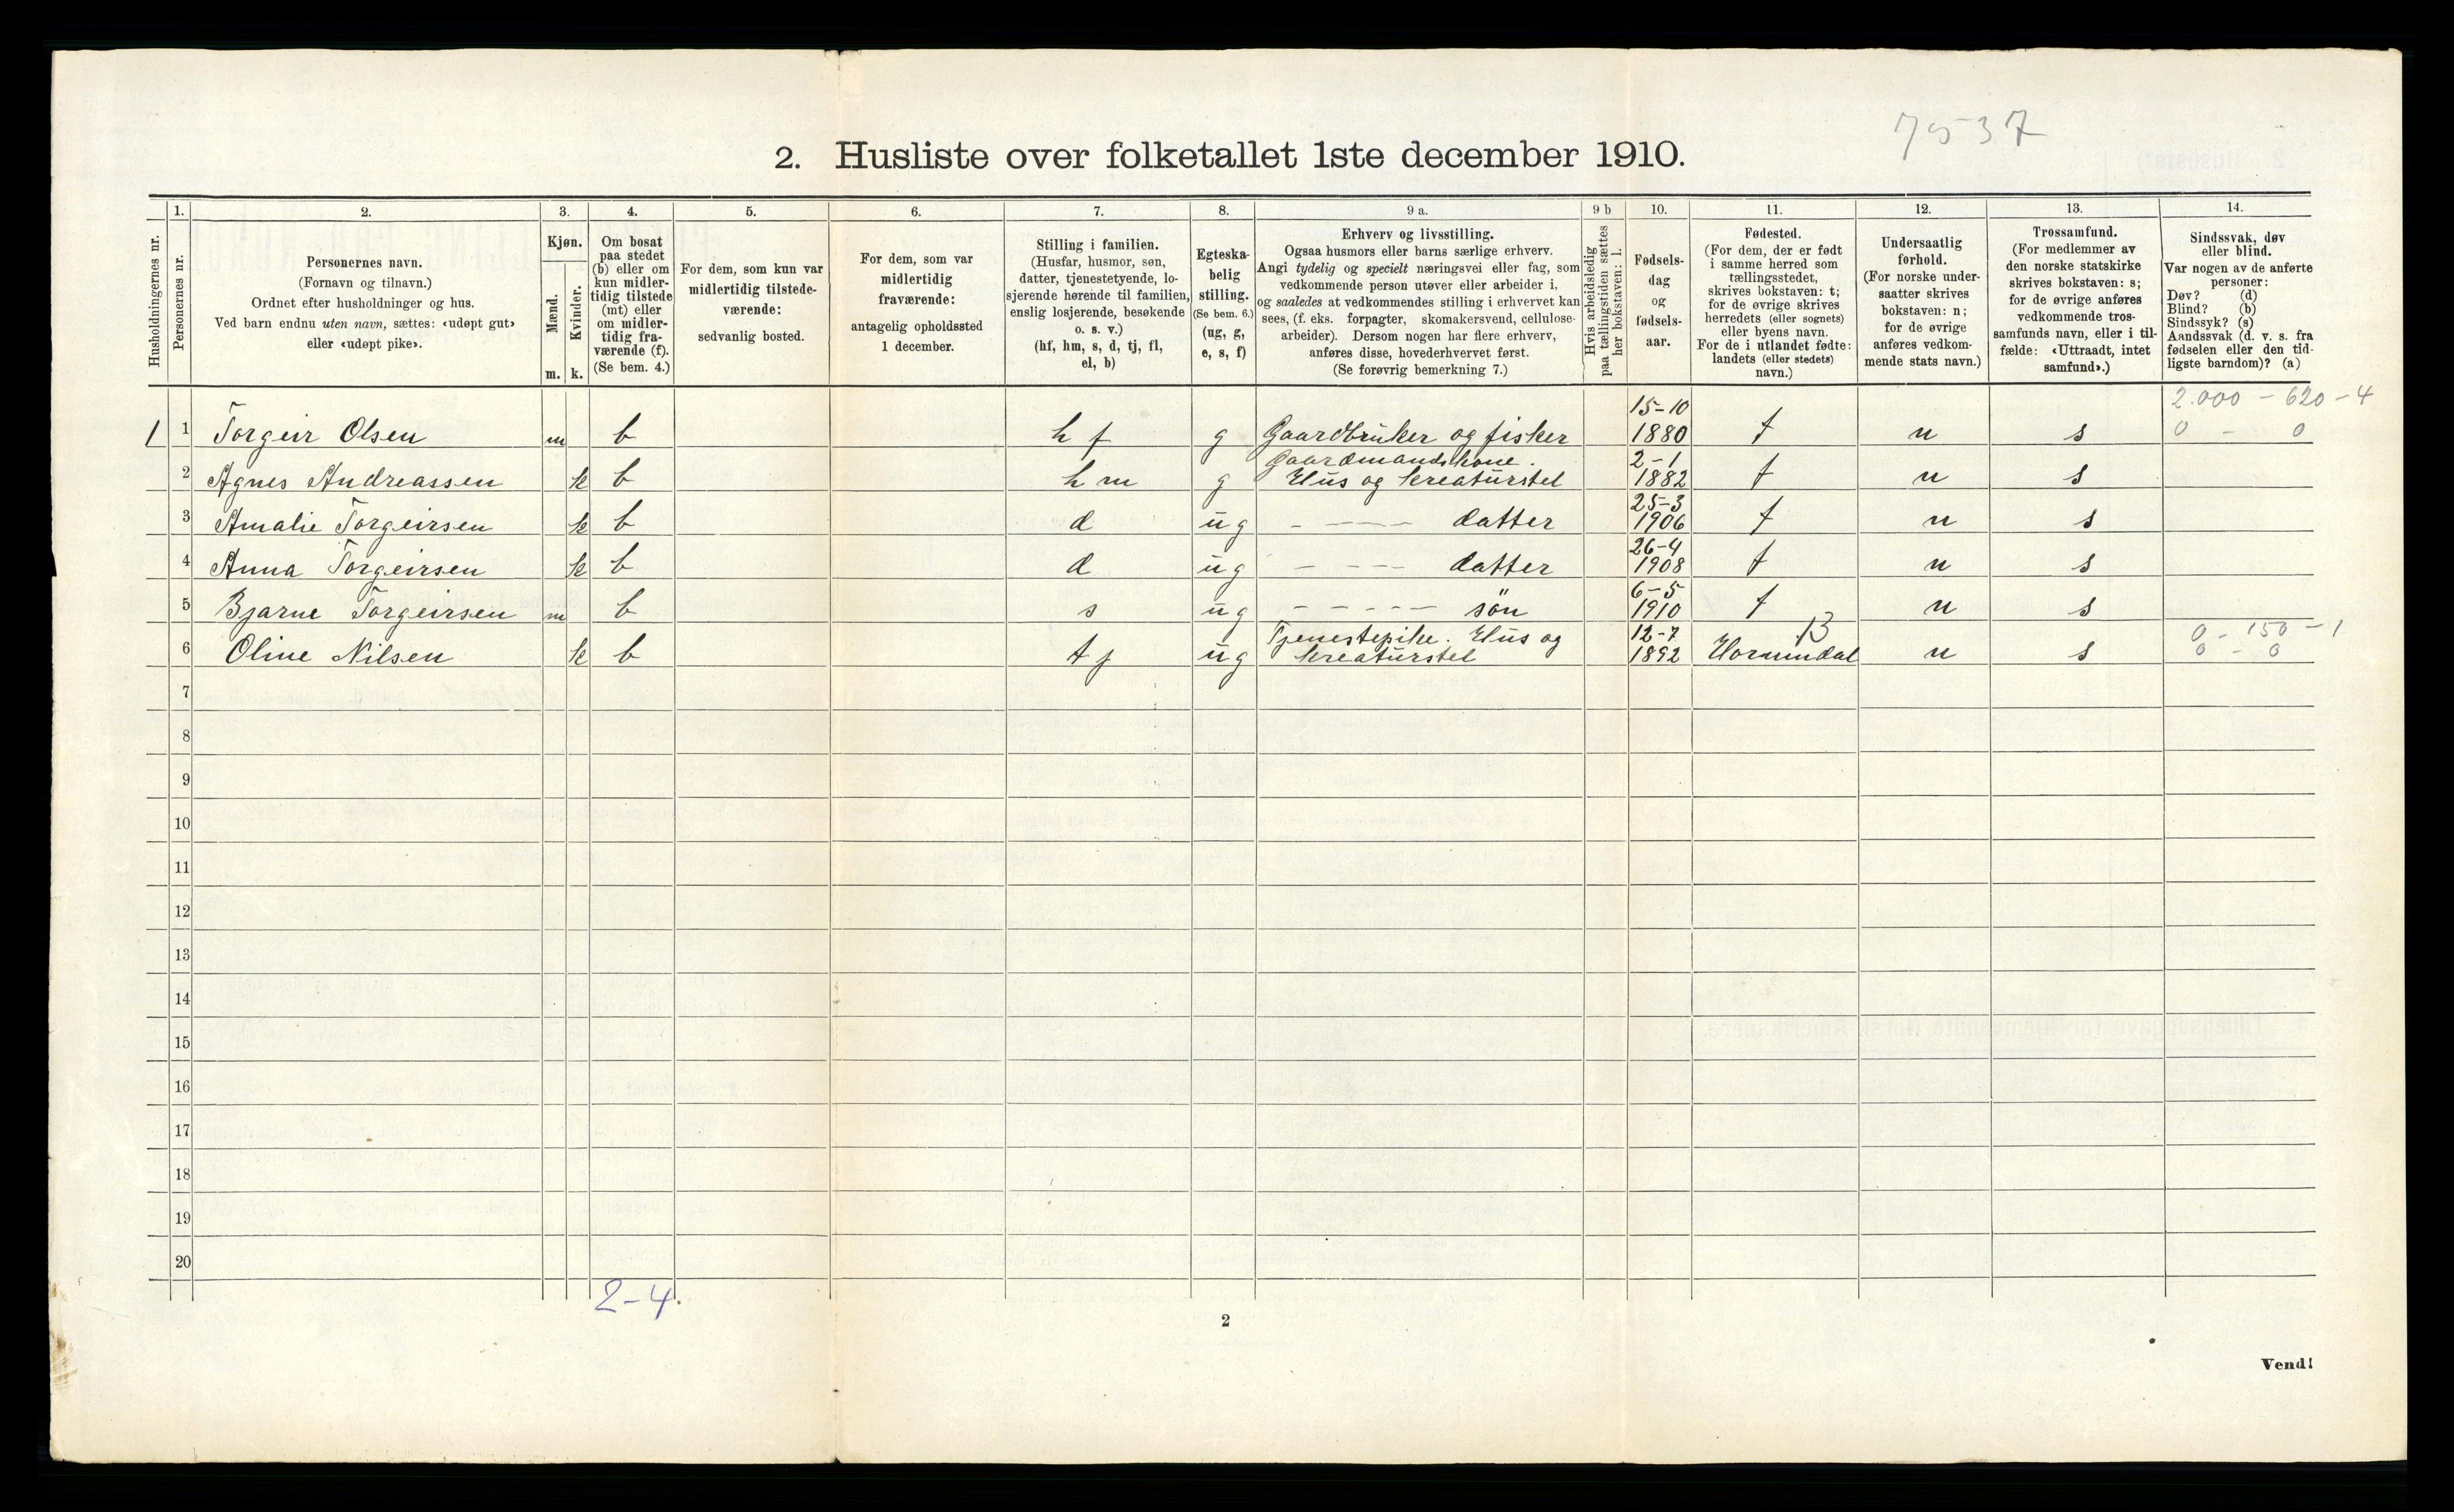 7537
2. Husliste over folketallet 1ste december 1910.
Husholdningernes nr.
1.
Personernes nr.
2.
Personernes navn.
(Fornavn og tilnavn.)
Ordnet efter husholdninger og hus.
Ved barn endnu uten navn, sættes: «udøpt gut»
eller «udøpt pike».
3.
Kjøn.
Mænd.
Kvinder.
m. k.
4.
Om bosat
paa stedet
(b) eller om
kun midler-
tidig tilstede
(mt) eller
om midler-
tidig fra-
værende (f).
(Se bem. 4.)
5.
For dem, som kun var
midlertidig tilstede-
værende:
sedvanlig bosted.
6.
For dem, som var
midlertidig
fraværende:
antagelig opholdssted
1 december.
7.
Stilling i familien.
(Husfar, husmor, søn,
datter, tjenestetyende, lo-
sjerende hørende til familien,
enslig losjerende, besøkende
o. s. v.)
(hf, hm, s, d, tj, fl,
el, b)
8.
Egteska-
belig
stilling.
(Se bem. 6.)
(ug, g,
e, s, f)
9 a.
Erhverv og livsstilling.
Ogsaa husmors eller barns særlige erhverv.
Angi tydelig og specielt næringsvei eller fag, som
vedkommende person utøver eller arbeider i,
og saaledes at vedkommendes stilling i erhvervet kan
sees, (f. eks. forpagter, skomakersvend, cellulose-
arbeider). Dersom nogen har flere erhverv,
anføres disse, hovederhvervet først.
(Se forøvrig bemerkning 7.)
9 b
Hvis arbeidsledig
paa tællingstiden sættes
her bokstaven: l.
10.
Fødsels-
dag
og
fødsels-
aar.
11.
Fødested.
(For dem, der er født
i samme herred som
tællingsstedet,
skrives bokstaven: t;
for de øvrige skrives
herredets (eller sognets)
eller byens navn.
For de i utlandet fødte:
landets (eller stedets)
navn.)
12.
Undersaatlig
forhold.
(For norske under-
saatter skrives
bokstaven: n;
for de øvrige
anføres vedkom-
mende stats navn.)
13.
Trossamfund.
(For medlemmer av
den norske statskirke
skrives bokstaven: s;
for de øvrige anføres
vedkommende tros-
samfunds navn, eller i til-
fælde: «Uttraadt, intet
samfund».)
14.
Sindssvak, døv
eller blind.
Var nogen av de anførte
personer:
Døv? (d)
Blind? (b)
Sindssyk? (s)
Aandssvak (d. v. s. fra
fødselen eller den tid-
ligste barndom)? (a)
15-10 2.000 - 620 - 4
1 1 Torgeir Olsen m b hf g Gaardbruker og fisker 1880 t n s 0 - 0
Gaardmandskone. 2-1
2 Agnes Andreassen k b hm g Hus og kreaturstel 1882 t n s
25-3
3 Amalie Torgeirsen k b d ug - ---- datter 1906 t n s
26-4
4 Anna Torgeirsen k b d ug - --- datter 1908 t n s
6-5
5 Bjarne Torgeirsen m b s ug - - - - - sön 1910 t n s
Tjenestepike. Hus og 12-7 13 0 - 150 - 1
6 Oline Nilsen k b tj ug kreaturstel 1892 Hornindal n s 0 - 0
7
8
9
10
11
12
13
14
15
16
17
18
19
20
2-4.
2
Vend!